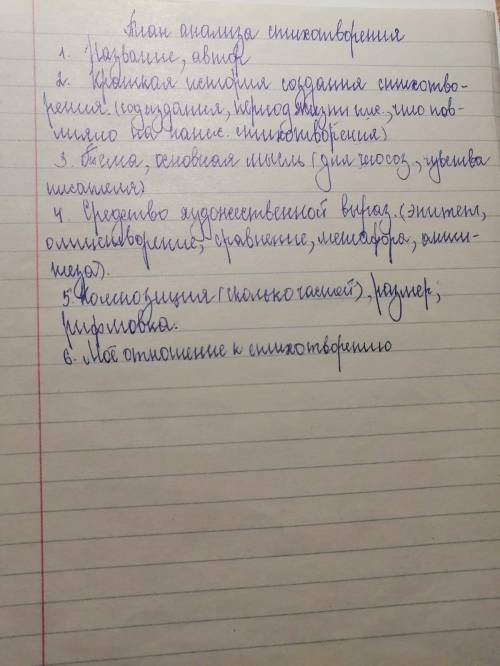 План анализа стихотворения
1. Название, автор
2. Краткая история создания стихотво-
рения. (год издания, период жизни пис., что пов-
лияло на напис. стихотворения)
3. Тема, основная мысль (для чего соз., чувства
писателя)
4. Средство художественной выраз. (эпитет,
олицетворение, сравнение, метафора, анти-
теза).
5. Композиция (сколько частей), размер;
рифмовка.
6. Моё отношение к стихотворению